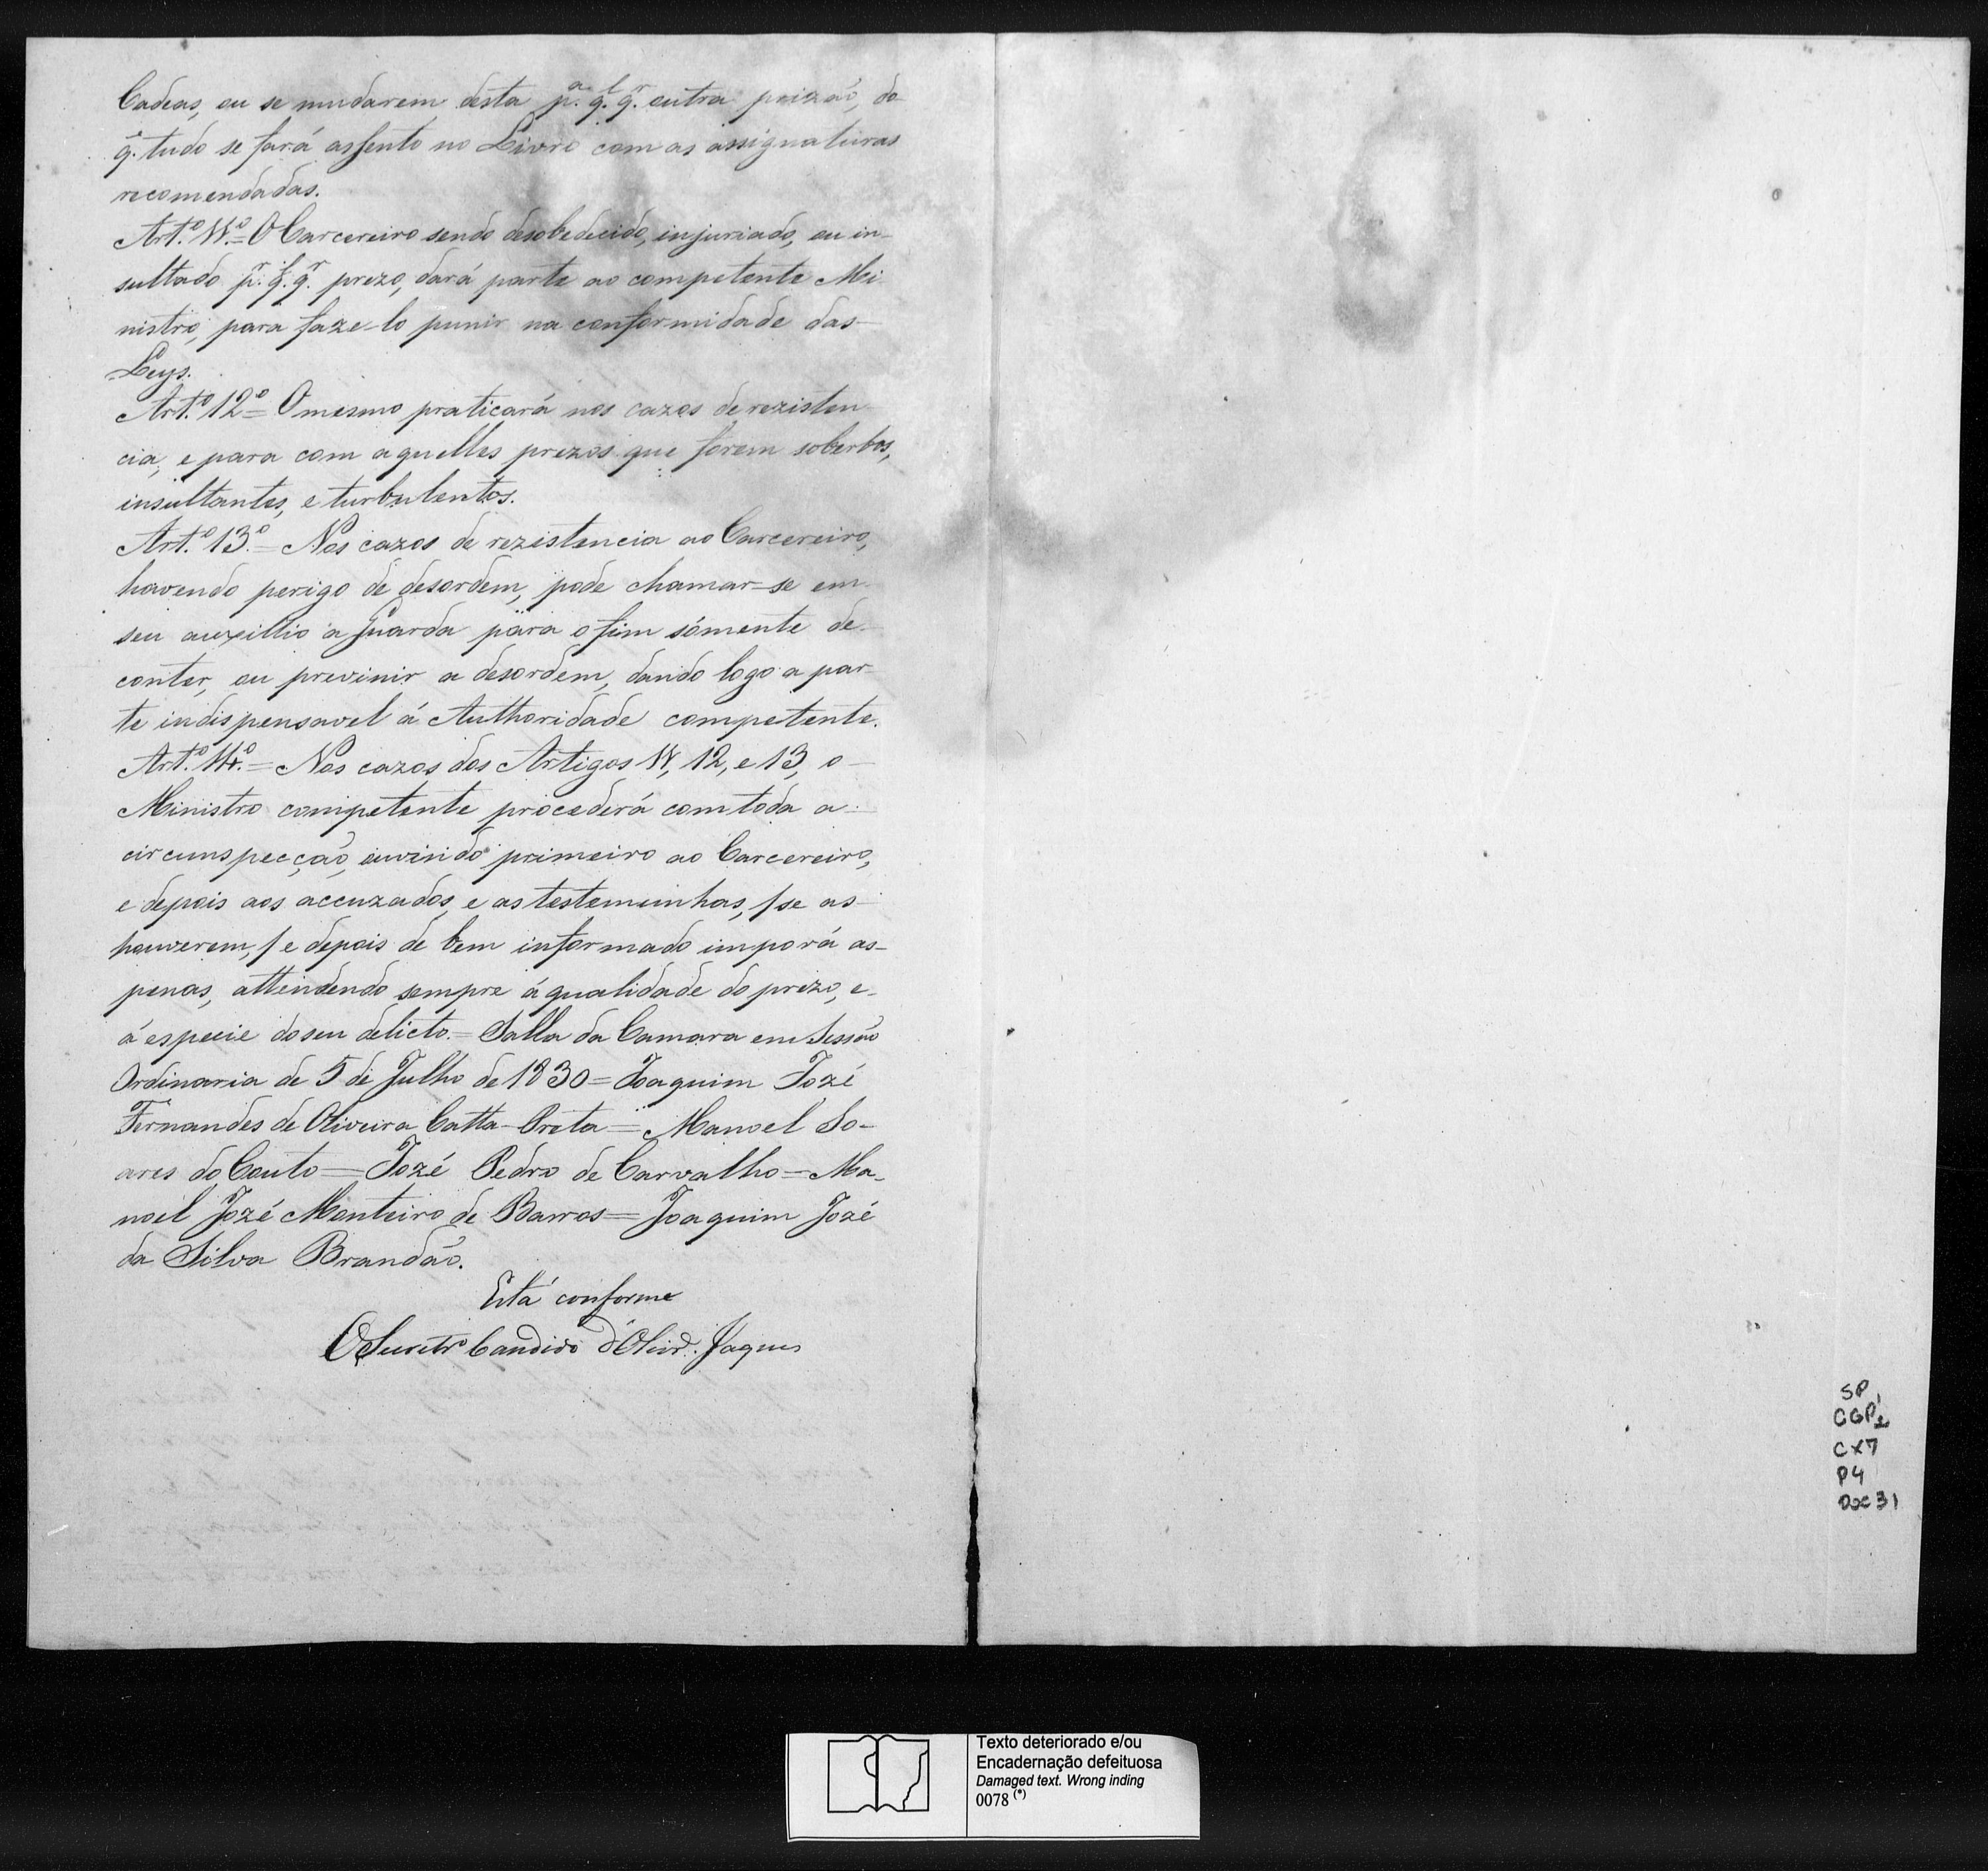 Cadeas, ou se mudarem desta p.ª q.l q.r outra prizaõ, do
q̃ tudo se fará assento no Livro com as assignaturas
recomendadas.
Art.º 11.º = O Carcereiro sendo desobedecido, injuriado, ou in-
sultado p.r q.l q.r prezo, dará parte ao competente Mi
nistro, para faze-lo punir na conformidade das
Leys.
Art.º 12º = O mesmo praticará nos cazos de rezisten
cia, e para com aquelles prezos que forem soberbos,
insultantes, e turbulentos.
Art.º 13.º = Nos cazos de rezistencia ao Carcereiro,
havendo perigo de desordem, pode chamar-se em
seu auxillio a Guarda para o fim sómente de
conter, ou previnir a desordem, dando logo a par
te indispensavel á Authoridade competente.
Art.º 14.º = Nos cazos dos Artigos 11, 12, e 13, o
Ministro competente procederá com toda a
circunspecção, ouvindo primeiro ao Carcereiro,
e depois aos accuzados, e as testemunhas, / se as
houverem, / e depois de bem informado imporá as
penas, attendendo sempre á qualidade do prezo, e
á especie do seu delicto. = Salla da Camara em Sessaõ
Ordinaria de 5 de Julho de 1830 = Joaquim Jozé
Fernandes de Oliveira Catta-Preta = Manoel So-
ares do Couto = Jozé Pedro de Carvalho = Ma-
noel Jozé Monteiro de Barros = Joaquim Jozé
da Silva Brandaõ.
Está conforme
O Secretr.º Candido d'Olivr.ª Jaques
SP
CGP
CX7
P4
Doc 31
Texto deteriorado e/ou
Encadernação defeituosa
Damaged text. Wrong inding
0078 (*)